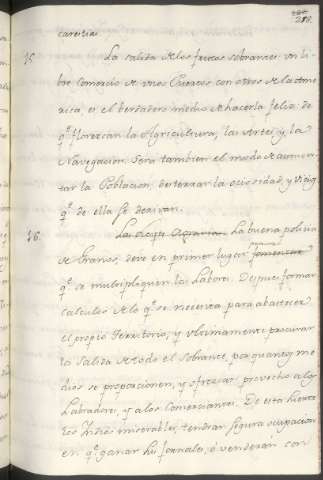 218.
carestia.
15. La salida de los frutos sobrantes: un li-
bre Comercio de unos Puertos con otros de la Ame-
rica, es el berdadero medio de hacerla feliz: de
q.e florezcan la Agricultura, las Artes, y la
Navegacion. Sera tambien el modo de aumen-
tar la Poblacion, desterrar la ociosidad, y vicios
q.e de ella se derivan.
16. La Agraria. La buena policia
de Granos, deve en primer lugar fomentar
q.e se multipliquen las Labores. Despues formar
calculos de lo q.e se necesita para abastecer
el propio Territorio; y ultimamente procurar
la Salida de todo el Sobrante, por quantos me-
dios se proporcionen, y ofrezcan provecho a los
Labradores, y a los Comerciantes. De esta suerte
los Indios miserables, tendran segura ocupacion
en q.e ganar sus jornales; ó venderán con